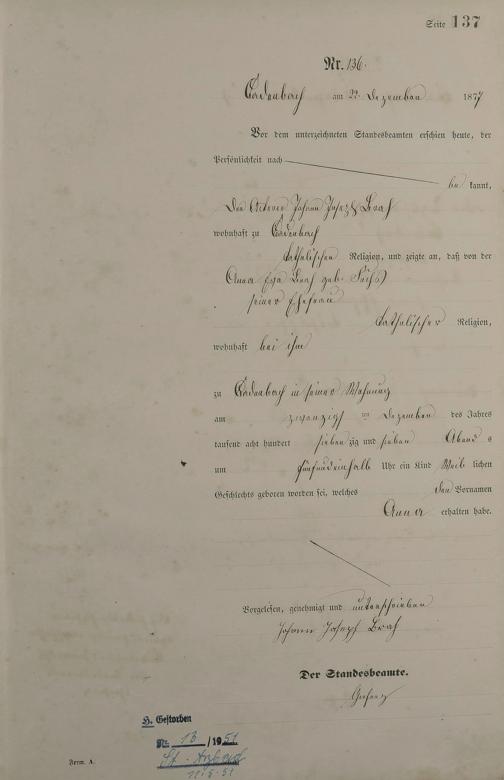 Seite 137
Nr. 136.
am 22. Dezember 1877
Vor dem unterzeichneten Standesbeamten erschien heute, der
Persönlichkeit nach
be kannt,
Johann Joseph
wohnhaft zu
katholischer Religion, und zeigte an, daß von der
Anna Eva geb.
seiner Ehefrau
katholischer Religion,
wohnhaft bei ihm
zu in seiner Wohnung
am zwanzigsten Dezember des Jahres
tausend acht hundert sieben zig und sieben Abend s
um Uhr ein Kind Weib lichen
Geschlechts geboren worden sei, welches den Vornamen
Anna erhalten habe.
Vorgelesen, genehmigt und unterschrieben
Johann Joseph
Der Standesbeamte.
H. Gestorben
Nr. 13 /1951
St.
Form. A.